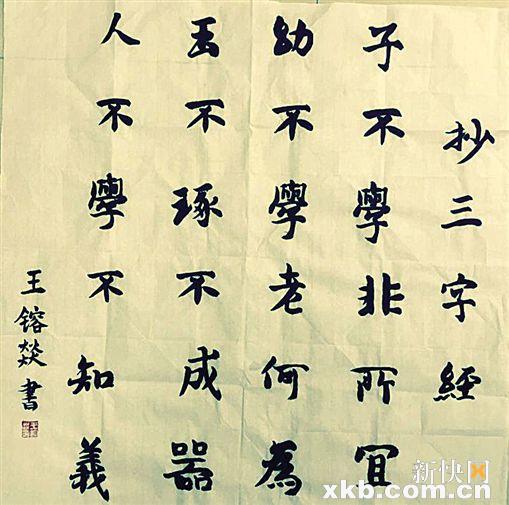 抄三字經
子不學非所宜
幼不學老何為
玉不琢不成器
人不學不知義
王镕焱書
新快网
xkb.com.cn